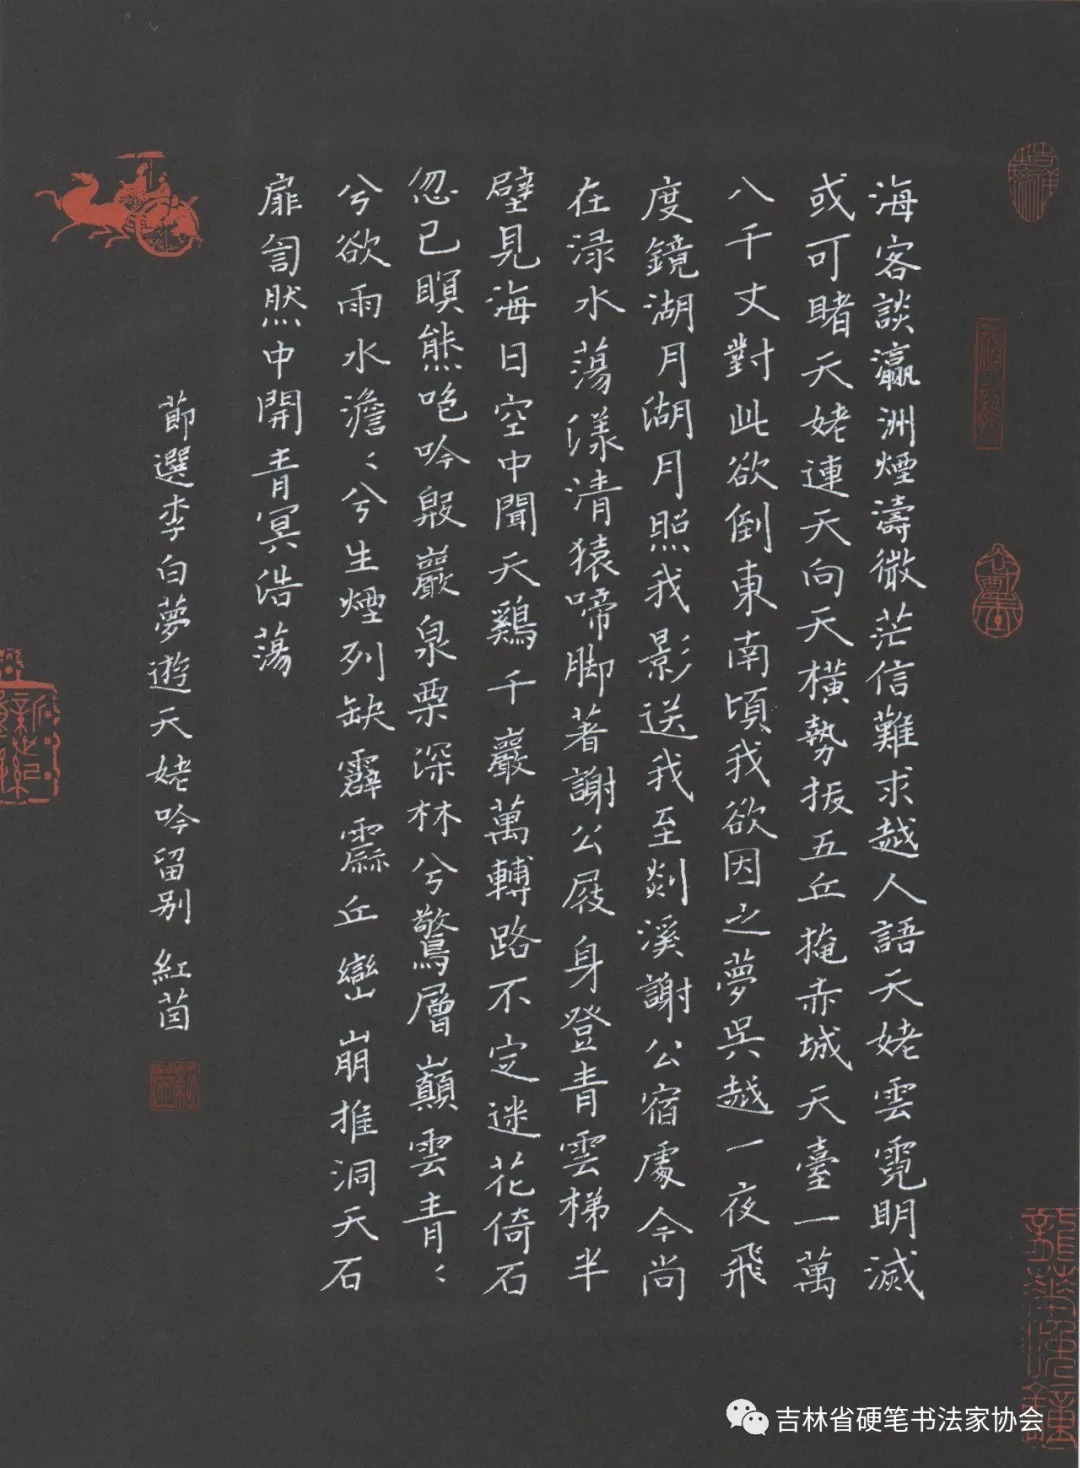 海客談瀛洲煙濤微茫信難求越人語天姥雲霓明滅
或可睹天姥連天向天橫勢拔五丘掩赤城天臺一萬
八千丈對此欲倒東南頃我欲因之夢吳越一夜飛
度鏡湖月湖月照我影送我至剡溪謝公宿處今尚
在淥水蕩漾清猿啼脚著謝公屐身登青雲梯半
壁見海日空中聞天鷄千巖萬轉路不定迷花倚石
忽已暝熊咆吟殷巖泉栗深林兮驚層巔雲青〻
兮欲雨水澹〻兮生煙列缺霹靂丘巒崩摧洞天石
扉訇然中開青冥浩蕩
節選李白夢遊天姥吟留别 紅茵
吉林省硬笔书法家协会